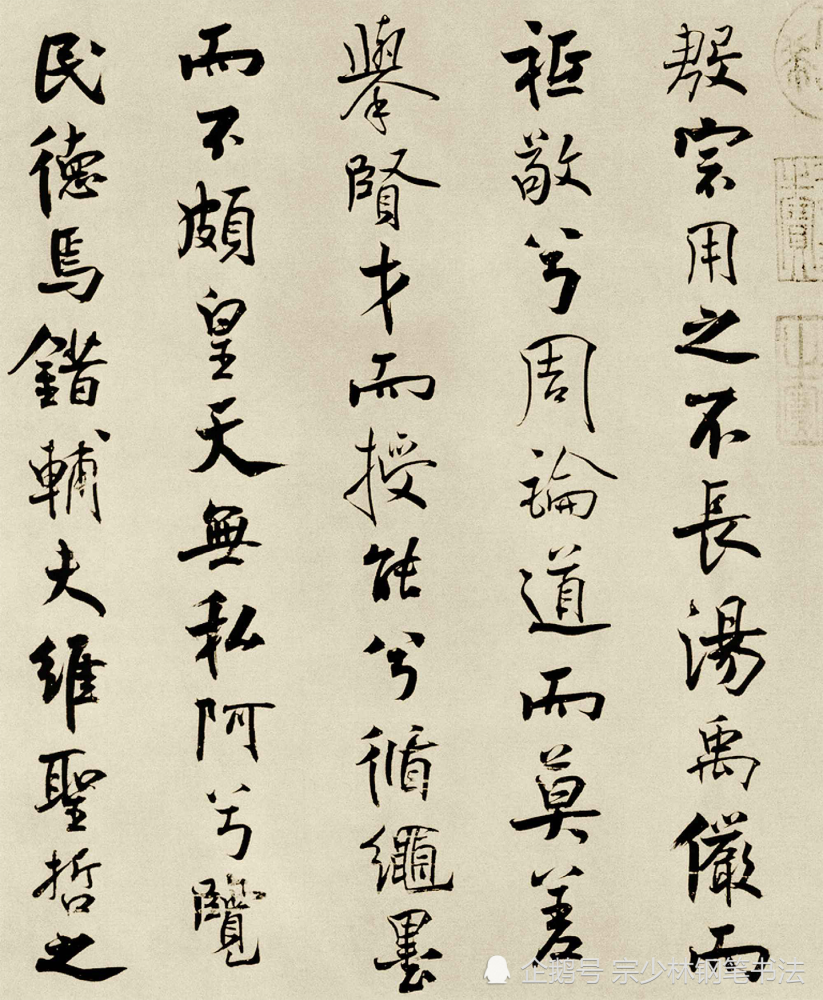 殷宗用之不長湯禹儼而
祗敬兮周論道而莫差
舉賢才而授能兮循繩墨
而不頗皇天無私阿兮覽
民德焉錯輔夫維聖哲之
企鹅号 宗少林钢笔书法